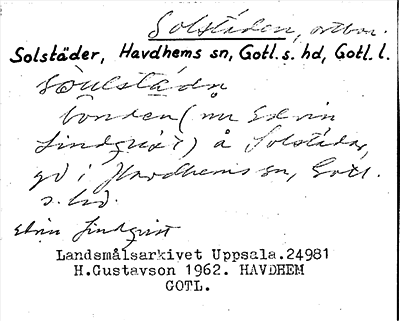 Solstäden, ortbon.
Solstäder, Havdhems sn, Gotl. s. hd, Gotl. l.
bonden (nu Edvin
Lindqvist) å Solstäder,
gd i Havdhems sn, Gotl.
s. hd.
Lindqvist
Landsmålsarkivet Uppsala.24981
H.Gustavson 1962. HAVDHEM
GOTL.